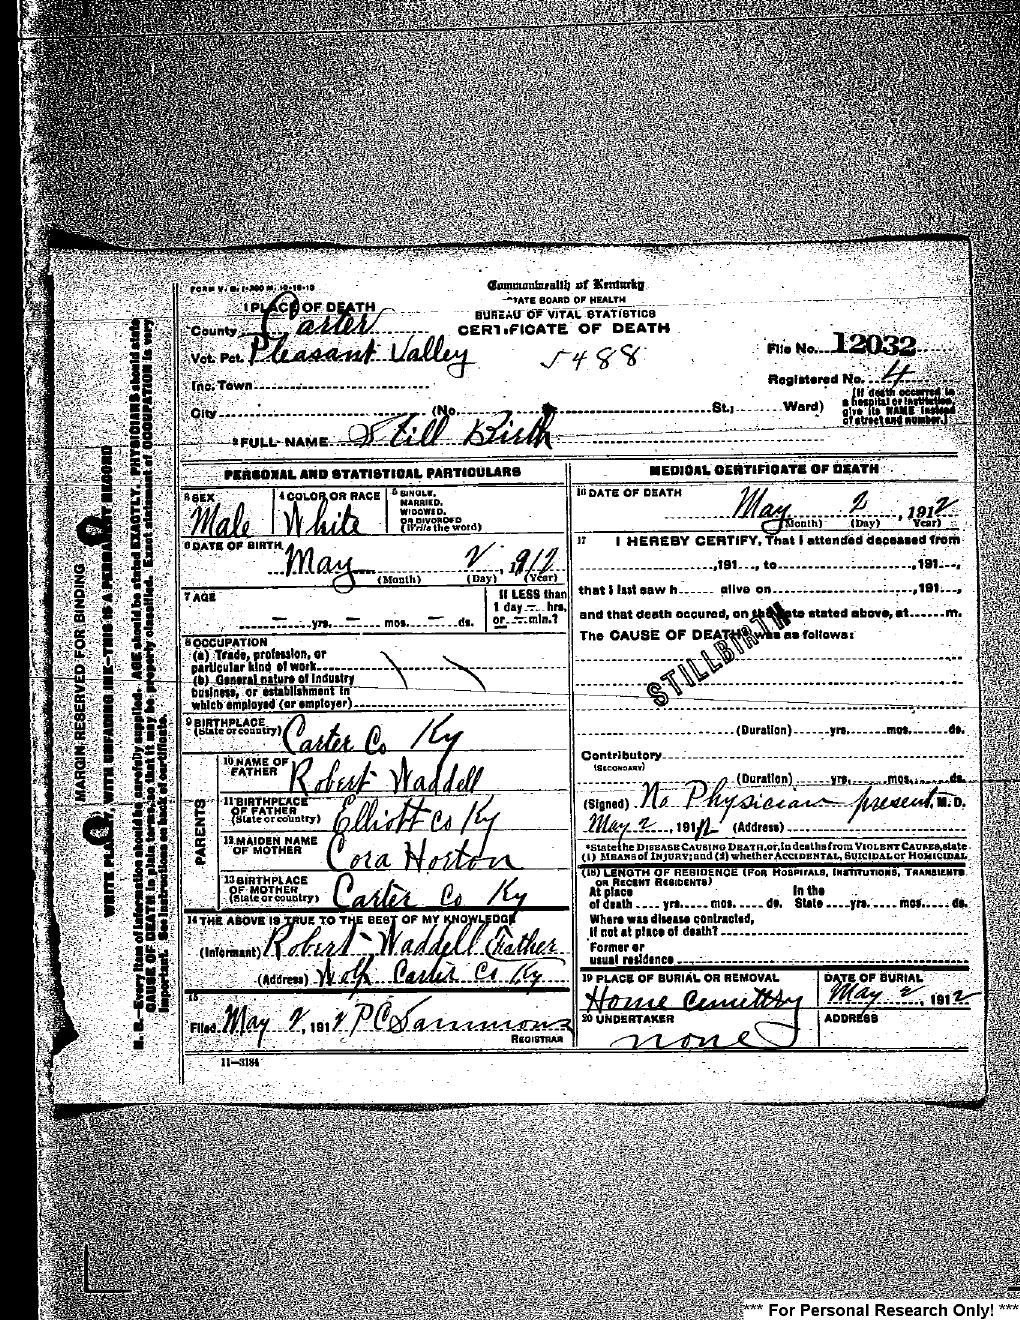 FORM V. S. 1-300 M. 10-18-10
Commonwealth of Kentucky
STATE BOARD OF HEALTH
BUREAU OF VITAL STATISTICS
CERTIFICATE OF DEATH
1 PLACE OF DEATH
County Carter
Vot. Pct. Pleasant Valley
5488
File No. 12032
Inc. Town
Registered No. 4
City (No. St.; Ward)
(If death occurred in
a hospital or institution,
give its NAME instead
of street and number.)
2 FULL NAME Still Birth
PERSONAL AND STATISTICAL PARTICULARS
3 SEX
Male
4 COLOR OR RACE
White
5 SINGLE,
MARRIED,
WIDOWED,
OR DIVORCED
(Write the word)
6 DATE OF BIRTH
May 2, 1912
(Month) (Day) (Year)
7 AGE
— yrs. — mos. — ds.
If LESS than
1 day — hrs.
or — min.?
8 OCCUPATION
(a) Trade, profession, or
particular kind of work
(b) General nature of industry
business, or establishment in
which employed (or employer)
9 BIRTHPLACE
(State or country) Carter Co Ky
PARENTS
10 NAME OF
FATHER Robert Waddell
11 BIRTHPLACE
OF FATHER
(State or country) Elliott Co Ky
12 MAIDEN NAME
OF MOTHER Cora Horton
13 BIRTHPLACE
OF MOTHER
(State or country) Carter Co Ky
14 THE ABOVE IS TRUE TO THE BEST OF MY KNOWLEDGE
(Informant) Robert Waddell Father
(Address) Wolf Carter Co. Ky
15
Filed May 2, 1912 P C Sammons
REGISTRAR
11—3184
MEDICAL CERTIFICATE OF DEATH
16 DATE OF DEATH
May 2, 1912
(Month) (Day) Year)
17 I HEREBY CERTIFY, That I attended deceased from
,191 , to ,191 ,
that I last saw h alive on ,191 ,
and that death occured, on the date stated above, at m.
The CAUSE OF DEATH was as follows:
STILLBIRTH
(Duration) yrs. mos. ds.
Contributory
(SECONDARY)
(Duration) yrs. mos. ds.
(Signed) No Physician present, M. D.
May 2, 1912 (Address)
*State the DISEASE CAUSING DEATH, or, in deaths from VIOLENT CAUSES, state
(1) MEANS of INJURY; and (2) whether ACCIDENTAL, SUICIDAL or HOMICIDAL
(18) LENGTH OF RESIDENCE (FOR HOSPITALS, INSTITUTIONS, TRANSIENTS
OR RECENT RESIDENTS)
At place In the
of death yrs. mos. ds. State yrs. mos. ds.
Where was disease contracted,
If not at place of death?
Former or
usual residence
19 PLACE OF BURIAL OR REMOVAL
Home Cemettry
DATE OF BURIAL
May 2, 1912
20 UNDERTAKER
none
ADDRESS
MARGIN RESERVED FOR BINDING
WRITE PLAINLY, WITH UNFADING INK—THIS IS A PERMANENT RECORD
N. B.—Every item of information should be carefully supplied. AGE should be stated EXACTLY. PHYSICIANS should state
CAUSE OF DEATH in plain terms, so that it may be properly classified. Exact statement of OCCUPATION is very
important. See instructions on back of certificate.
*** For Personal Research Only! ***